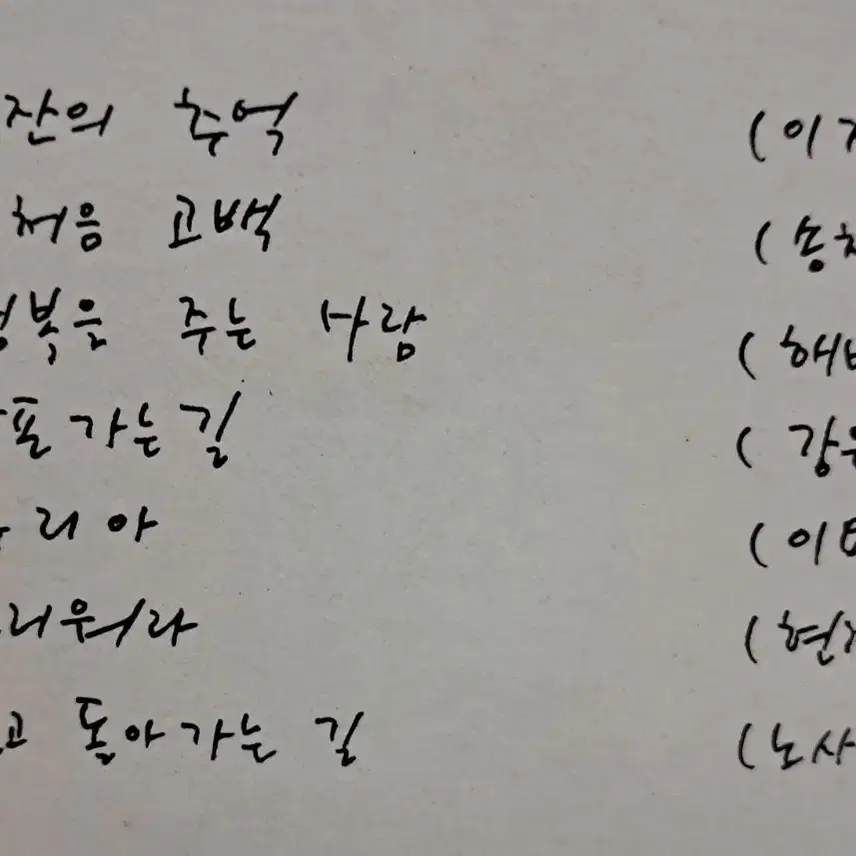 잔의 추억 (이
처음 고백 (송
행복을 주는 사람 (해바
포 가는 길 (강
리아 (이
러워라 (현
고 돌아가는 길 (노사